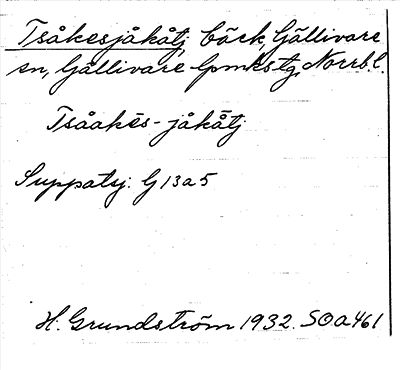 Tsåkesjåkåtj, bäck, Gällivare
sn, Gällivare lpmkstg, Norrb.l.
Tsåakēs-jåkåtj
Suppatsj: G 13 a 5
H. Grundström 1932. SOa 461